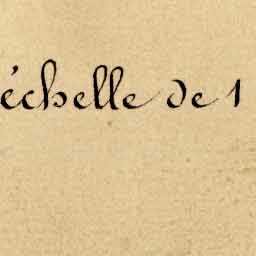 échelle de 1